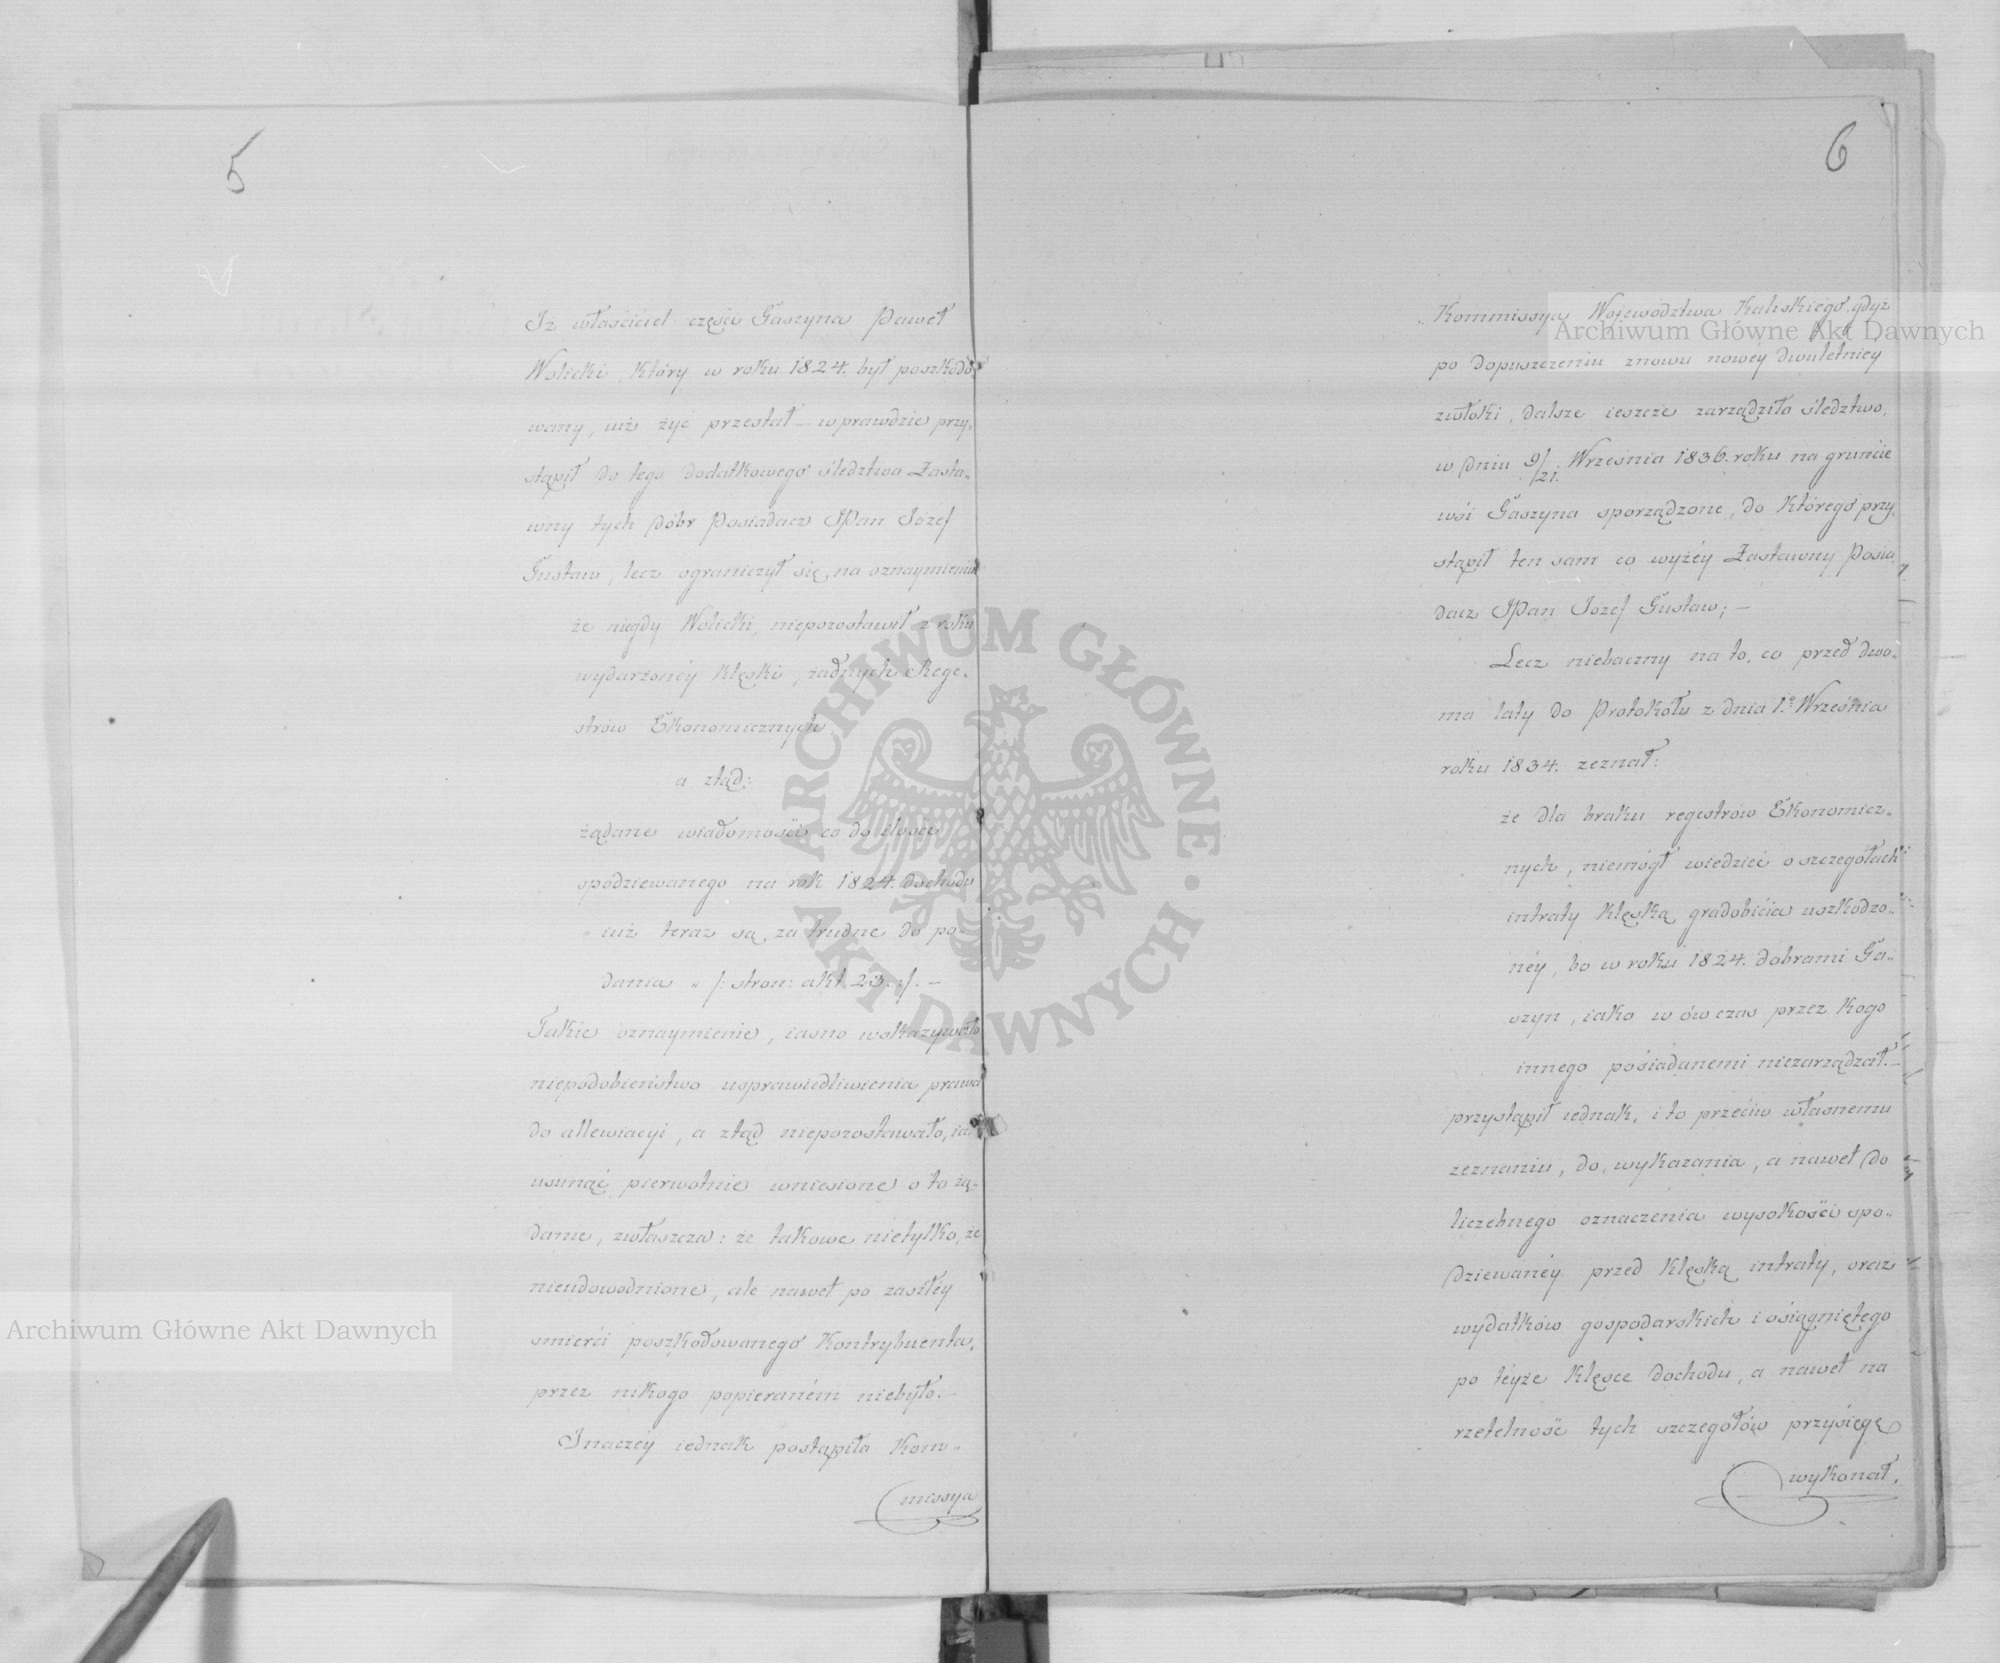 5
Iż właściciel części Gaszyna Paweł
Wolicki, który w roku 1824. był poszkodo,
wany, iuż żyć przestał – wprawdzie przy,
stąpił do tego dodatkowego śledztwa Zasta,
wny tych Dóbr Posiadacz JPan Józef
Gustaw, lecz ograniczył się, na oznaymieniu
że niegdy Wolicki, niepozostawił z roku
wydarzonéy klęski, żadnych Rege,
strów Ekonomicznych
a ztąd:
żądane wiadomości co do ilości
spodziewanego na rok 1824. dochodu
„ iuż teraz są za trudne do po„
dania „ /: stron: akt 23. :/. –
Takie oznaymienie, iasno wskazywało
niepodobieństwo usprawiedliwienia prawa
do allewiacyi, a ztąd niepozostawało, iak
usunąć pierwotnie wniesione o to żą„
danie, zwłaszcza: że takowe nietylko, że
nieudowodnione, ale nawet po zaszłéy
śmierci poszkodowanego Kontrybuenta,
przez nikogo popieraném niebyło. –
Inaczéy iednak postąpiła Kom„
missya
6
„Kommissya Województwa Kaliskiego, gdyż
po dopuszczeniu znowu nowéy dwuletniey
zwłoki, dalsze ieszcze zarządziła śledztwo,
w dniu 9/21. Września 1836. roku na gruncie
wsi Gaszyna sporządzone, do którego przy,
stąpił ten sam co wyżéy Zastawny Posia
dacz JPan Józef Gustaw; –
Lecz niebaczny na to, co przed dwo„
ma laty do Protokółu z dnia 1.º Września
roku 1834. zeznał:
że dla braku regestrów Ekonomicz„
nych, niemógł wiedzieć o szczegółach
intraty klęską gradobicia uszkodzo„
néy, bo w roku 1824. dobrami Ga„
szyn, iako wówczas przez kogo
innego posiadanemi niezarządzał. –
przystąpił iednak, i to przeciw własnemu
zeznaniu, do wykazania, a nawet do
liczebnego oznaczenia wysokości spo„
dziewanéy przed klęską intraty, oraz
wydatków gospodarskich i osiągniętego
po téyże klęsce dochodu, a nawet na
rzetelność tych szczegółów przysięgę
wykonał.
ARCHIWUM GŁÓWNE AKT DAWNYCH
Archiwum Główne Akt Dawnych
Archiwum Główne Akt Dawnych